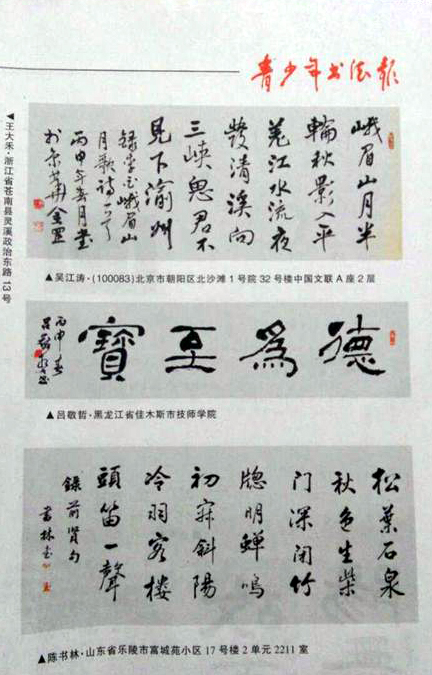 青少年书法报
▲王大禾·浙江省苍南县灵溪政治东路 13 号
峨眉山月半
輪秋影入平
羌江水流夜
發清溪向
三峡思君不
見下渝州
錄李白峨眉山
月歌詩一首
丙申年春月書
於京華
▲吴江涛·(100083)北京市朝阳区北沙滩 1 号院 32 号楼中国文联 A 座 2 层
德為至寶
丙申春
吕敬哲書
▲吕敬哲·黑龙江省佳木斯市技师学院
松葉石泉
秋色生柴
门深闭竹
牕明蝉鳴
初寂斜陽
冷羽客樓
頭笛一聲
錄前賢句
書林書
▲陈书林·山东省乐陵市富城苑小区 17 号楼 2 单元 2211 室